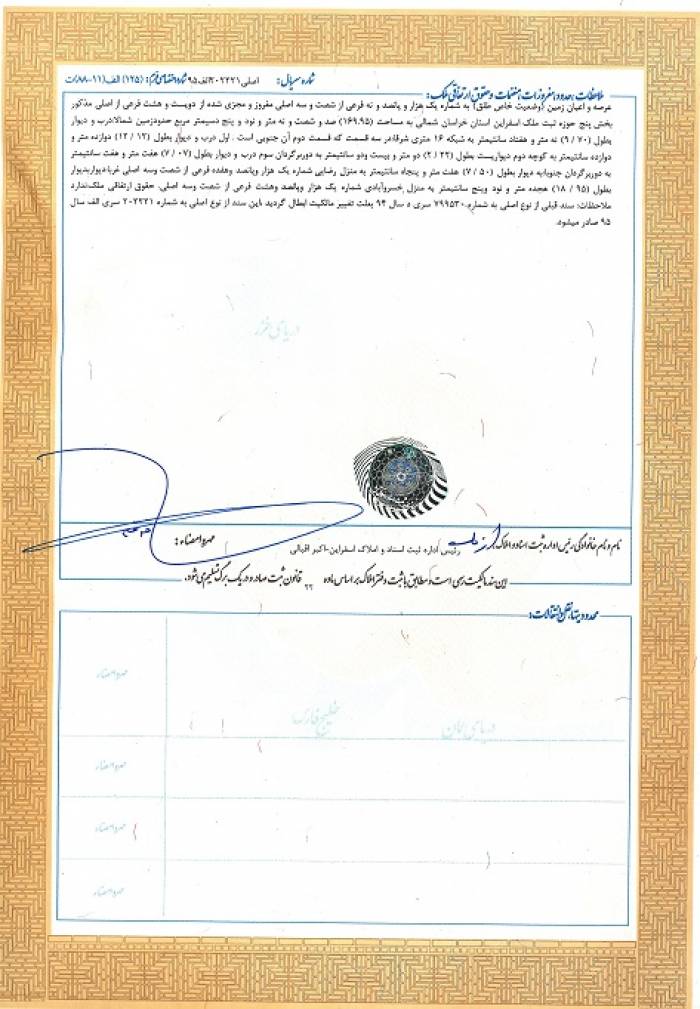 شماره سریال: اصلی ۲۰۲۲۲۱ الف ۹۵ شماره اختصاصی فرم: (۱۲۵) الف (۱۱-۸۸)ت
ملاحظات: حدود، مفروزات، منضمات و حقوق ارتفاقی ملک:
عرصه و اعیان زمین (وضعیت خاص طلق) به شماره یک هزار و پانصد و نه فرعی از شصت و سه اصلی مفروز و مجزی شده از دویست و هشت فرعی از اصلی مذکور
بخش پنج حوزه ثبت ملک اسفراین استان خراسان شمالی به مساحت (۱۶۹.۹۵) صد و شصت و نه متر و نود و پنج دسیمتر مربع حدودزمین شمالادرب و دیوار
بطول (۷۰ / ۹) نه متر و هفتاد سانتیمتر به شبکه ۱۶ متری شرقادر سه قسمت که قسمت دوم آن جنوبی است . اول درب و دیوار بطول (۱۲ / ۱۲) دوازده متر و
دوازده سانتیمتر به کوچه دوم دیواریست بطول (۲۲ / ۲) دو متر و بیست ودو سانتیمتر به دوربرگردان سوم درب و دیوار بطول (۰۷ / ۷) هفت متر و هفت سانتیمتر
به دوربرگردان جنوبابه دیوار بطول (۵۰ / ۷) هفت متر و پنجاه سانتیمتر به منزل رضایی شماره یک هزار وپانصد وهفده فرعی از شصت وسه اصلی غربادیواربدیوار
بطول (۹۵ / ۱۸) هجده متر و نود وپنج سانتیمتر به منزل خسروآبادی شماره یک هزار وپانصد وهشت فرعی از شصت وسه اصلی. حقوق ارتفاقی ملک‌ندارد
ملاحظات: سند قبلی از نوع اصلی به شماره ۷۹۹۵۳۰ سری ه سال ۹۴ بعلت تغییر مالکیت ابطال گردید .این سند از نوع اصلی به شماره ۲۰۲۲۲۱ سری الف سال
۹۵ صادر میشود.
دریای خزر
نام و نام خانوادگی رئیس اداره ثبت اسناد و املاک:
رئیس اداره ثبت اسناد و املاک اسفراین-اکبر اقبالی
مهر و امضاء:
این سند مالکیت رسمی است و مطابق با ثبت دفتر املاک بر اساس ماده ۲۲ قانون ثبت صادر و در یک برگ تسلیم می‌شود.
محدودیتها، نقل و انتقالات:
مهر و امضاء
خلیج فارس
دریای عمان
مهر و امضاء
مهر و امضاء
مهر و امضاء